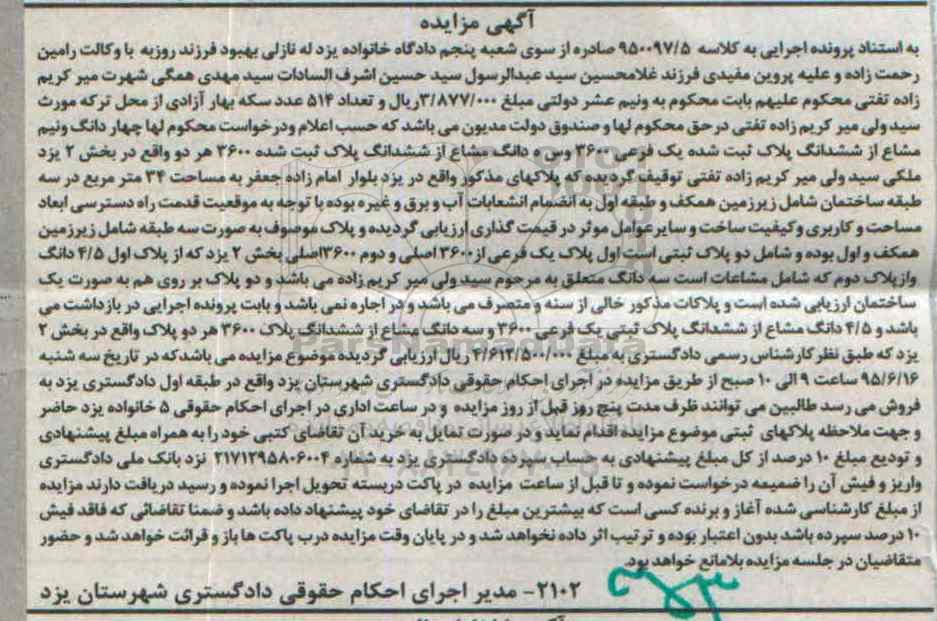 آگهی مزایده
به استناد پرونده اجرایی به کلاسه ۹۵۰۰۹۷/۵ صادره از سوی شعبه پنجم دادگاه خانواده یزد له نازلی بهبود فرزند روزبه با وکالت رامین
رحمت زاده و علیه پروین مفیدی فرزند غلامحسین سید عبدالرسول سید حسین اشرف السادات سید مهدی همگی شهرت میر کریم
زاده تفتی محکوم علیهم بابت محکوم به ونیم عشر دولتی مبلغ ۳/۸۷۷/۰۰۰ریال و تعداد ۵۱۴ عدد سکه بهار آزادی از محل ترکه مورث
سید ولی میر کریم زاده تفتی در حق محکوم لها و صندوق دولت مدیون می باشد که حسب اعلام ودرخواست محکوم لها چهار دانگ ونیم
مشاع از ششدانگ پلاک ثبت شده یک فرعی ۳۶۰۰ وس ه دانگ مشاع از ششدانگ پلاک ثبت شده ۳۶۰۰ هر دو واقع در بخش ۲ یزد
ملکی سید ولی میر کریم زاده تفتی توقیف گردیده که پلاکهای مذکور واقع در یزد بلوار امام زاده جعفر به مساحت ۳۴ متر مربع در سه
طبقه ساختمان شامل زیرزمین همکف و طبقه اول به انضمام انشعابات آب و برق و غیره بوده با توجه به موقعیت قدمت راه دسترسی ابعاد
مساحت و کاربری وکیفیت ساخت و سایر عوامل موثر در قیمت گذاری ارزیابی گردیده و پلاک موصوف به صورت سه طبقه شامل زیرزمین
همکف و اول بوده و شامل دو پلاک ثبتی است اول پلاک یک فرعی از ۳۶۰۰ اصلی و دوم ۳۶۰۰اصلی بخش ۲ یزد که از پلاک اول ۴/۵ دانگ
وازپلاک دوم که شامل مشاعات است سه دانگ متعلق به مرحوم سید ولی میر کریم زاده می باشد و دو پلاک بر روی هم به صورت یک
ساختمان ارزیابی شده است و پلاکات مذکور خالی از سنه و متصرف می باشد و در اجاره نمی باشد و بابت پرونده اجرایی در بازداشت می
باشد و ۴/۵ دانگ مشاع از ششدانگ پلاک ثبتی یک فرعی ۳۶۰۰ و سه دانگ مشاع از ششدانگ پلاک ۳۶۰۰ هر دو پلاک واقع در بخش ۲
یزد که طبق نظر کارشناس رسمی دادگستری به مبلغ ۴/۶۱۲/۵۰۰/۰۰۰ ریال ارزیابی گردیده موضوع مزایده می باشدکه در تاریخ سه شنبه
۹۵/۶/۱۶ ساعت ۹ الی ۱۰ صبح از طریق مزایده در اجرای احکام حقوقی دادگستری شهرستان یزد واقع در طبقه اول دادگستری یزد به
فروش می رسد طالبین می توانند ظرف مدت پنج روز قبل از روز مزایده و در ساعت اداری در اجرای احکام حقوقی ۵ خانواده یزد حاضر
و جهت ملاحظه پلاکهای ثبتی موضوع مزایده اقدام نماید و در صورت تمایل به خرید آن تقاضای کتبی خود را به همراه مبلغ پیشنهادی
و تودیع مبلغ ۱۰ درصد از کل مبلغ پیشنهادی به حساب سپرده دادگستری یزد به شماره ۲۱۷۱۲۹۵۸۰۶۰۰۴ نزد بانک ملی دادگستری
واریز و فیش آن را ضمیمه درخواست نموده و تا قبل از ساعت مزایده در پاکت دربسته تحویل اجرا نموده و رسید دریافت دارند مزایده
از مبلغ کارشناسی شده آغاز و برنده کسی است که بیشترین مبلغ را در تقاضای خود پیشنهاد داده باشد و ضمنا تقاضائی که فاقد فیش
۱۰ درصد سپرده باشد بدون اعتبار بوده و ترتیب اثر داده نخواهد شد و در پایان وقت مزایده درب پاکت ها باز و قرائت خواهد شد و حضور
متقاضیان در جلسه مزایده بلامانع خواهد بود.
۲۱۰۲- مدیر اجرای احکام حقوقی دادگستری شهرستان یزد
ParsNamadData